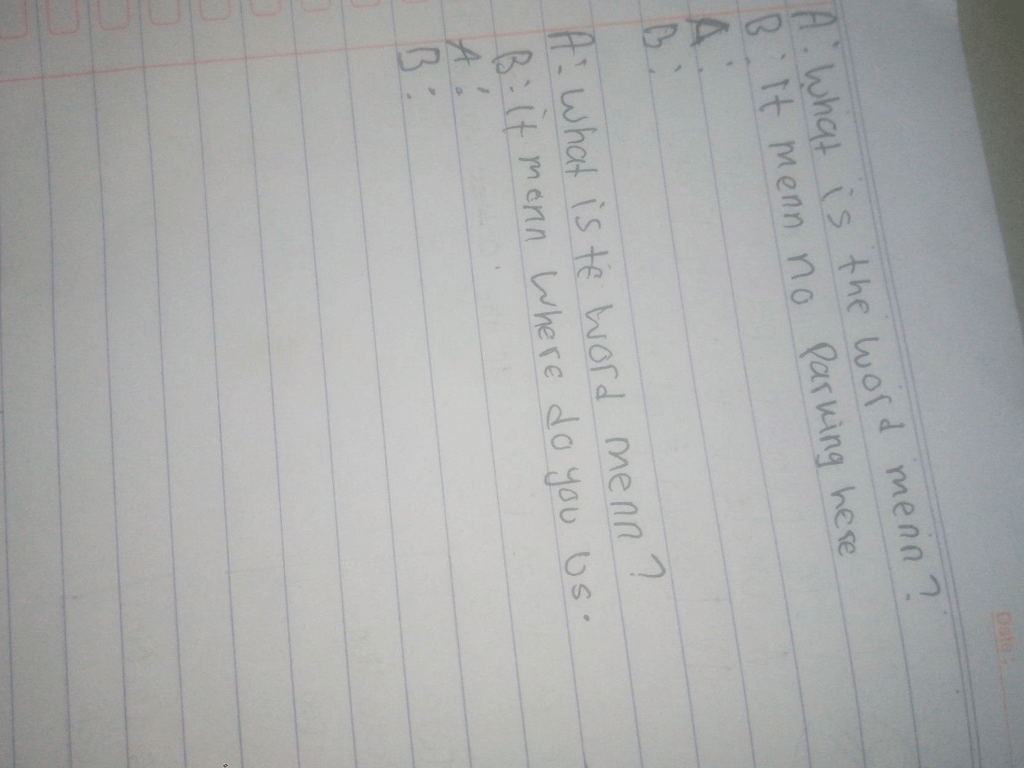 Date:
A: what is the word menn?
B: it menn no parking here
A:
B:
A: what is te word menn?
B: it menn where do you us.
A:
B: